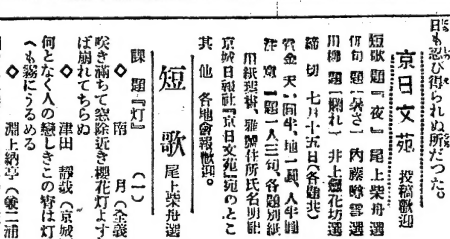 日も忍び得られぬ所だつた。
京日文苑 投稿歡迎
短歌題『夜』尾上柴舟選
俳句題『暑さ』内藤鳴雪選
川柳題『團れ』井上劔花坊選
締切 七月十五日(各題共)
賞金 天一圓半、地一圓、人半圓
注意 一題一人三句、各題別紙
用紙隨樹、雅號住所氏名明記
京城日報社『京日文苑』宛のとこ
其他 各地會報歡迎。
短歌 尾上柴舟選
課題『灯』(一)
◇ 南 月(全義
咲き滿ちて窓際近き櫻花灯よす
ば崩れてちらぬ
◇ 津田 靜哉(京城
何となく人の戀しきこの宵は灯
へも霧にうるめる
◇ 淵上納亭(義二浦